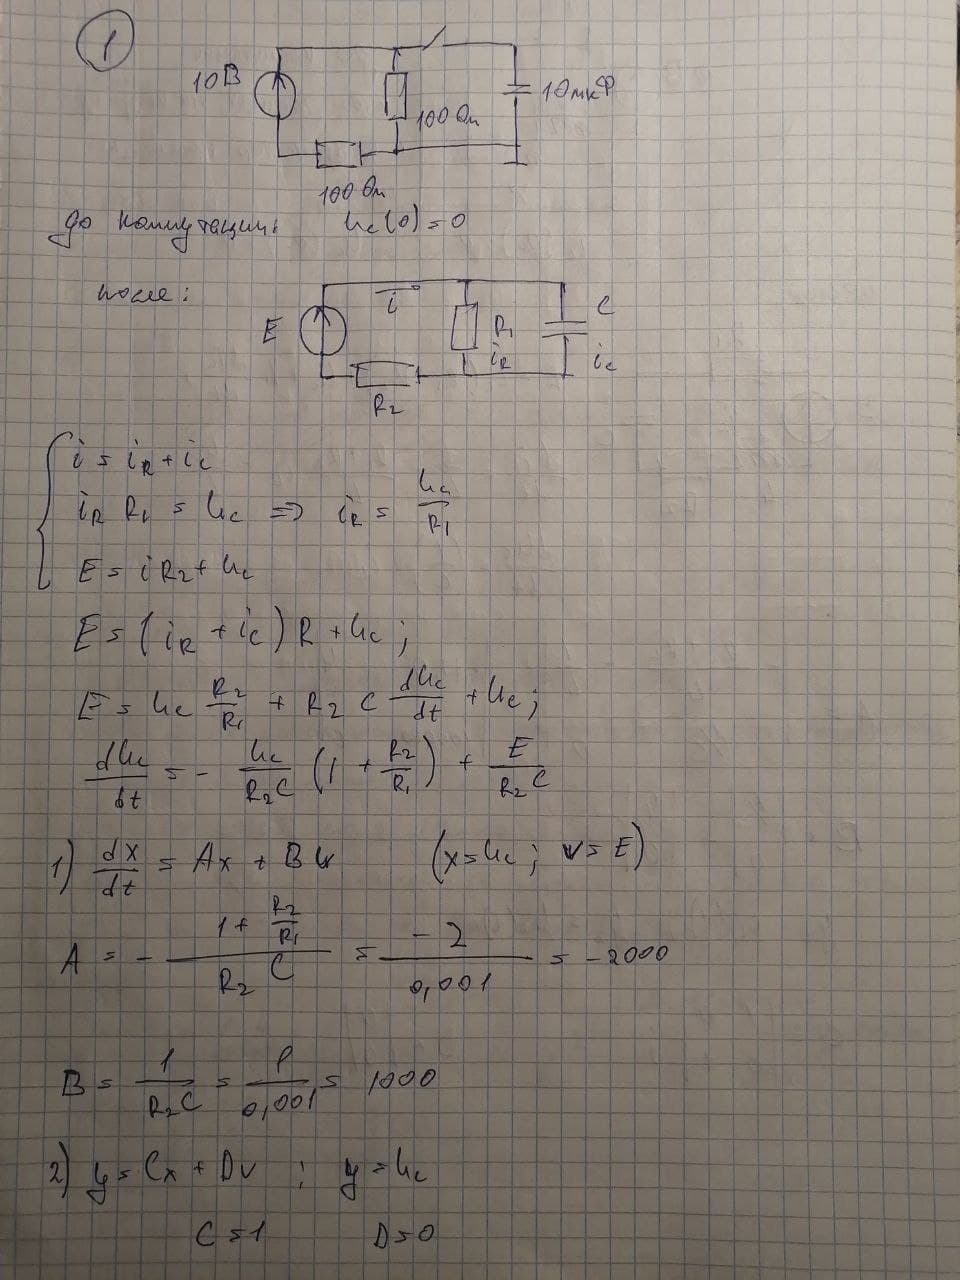 1
10В
100 Ом
10мкФ
100 Ом
до коммутации: uc(0) = 0
после:
E i R1 iR C ic
R2
i = iR + ic
iR R1 = uc => iR = uc/R1
E = iR2 + uc
E = (iR + ic) R + uc;
E = uc R2/R1 + R2 C duc/dt + uc;
duc/dt = - uc/R2C (1 + R2/R1) + E/R2C
1) dx/dt = Ax + Bv (x = uc; v = E)
A = - (1 + R2/R1)/R2C = -2/0,001 = -2000
B = 1/R2C = 1/0,001 = 1000
2) y = Cx + Dv ; y = uc
C = 1 D = 0